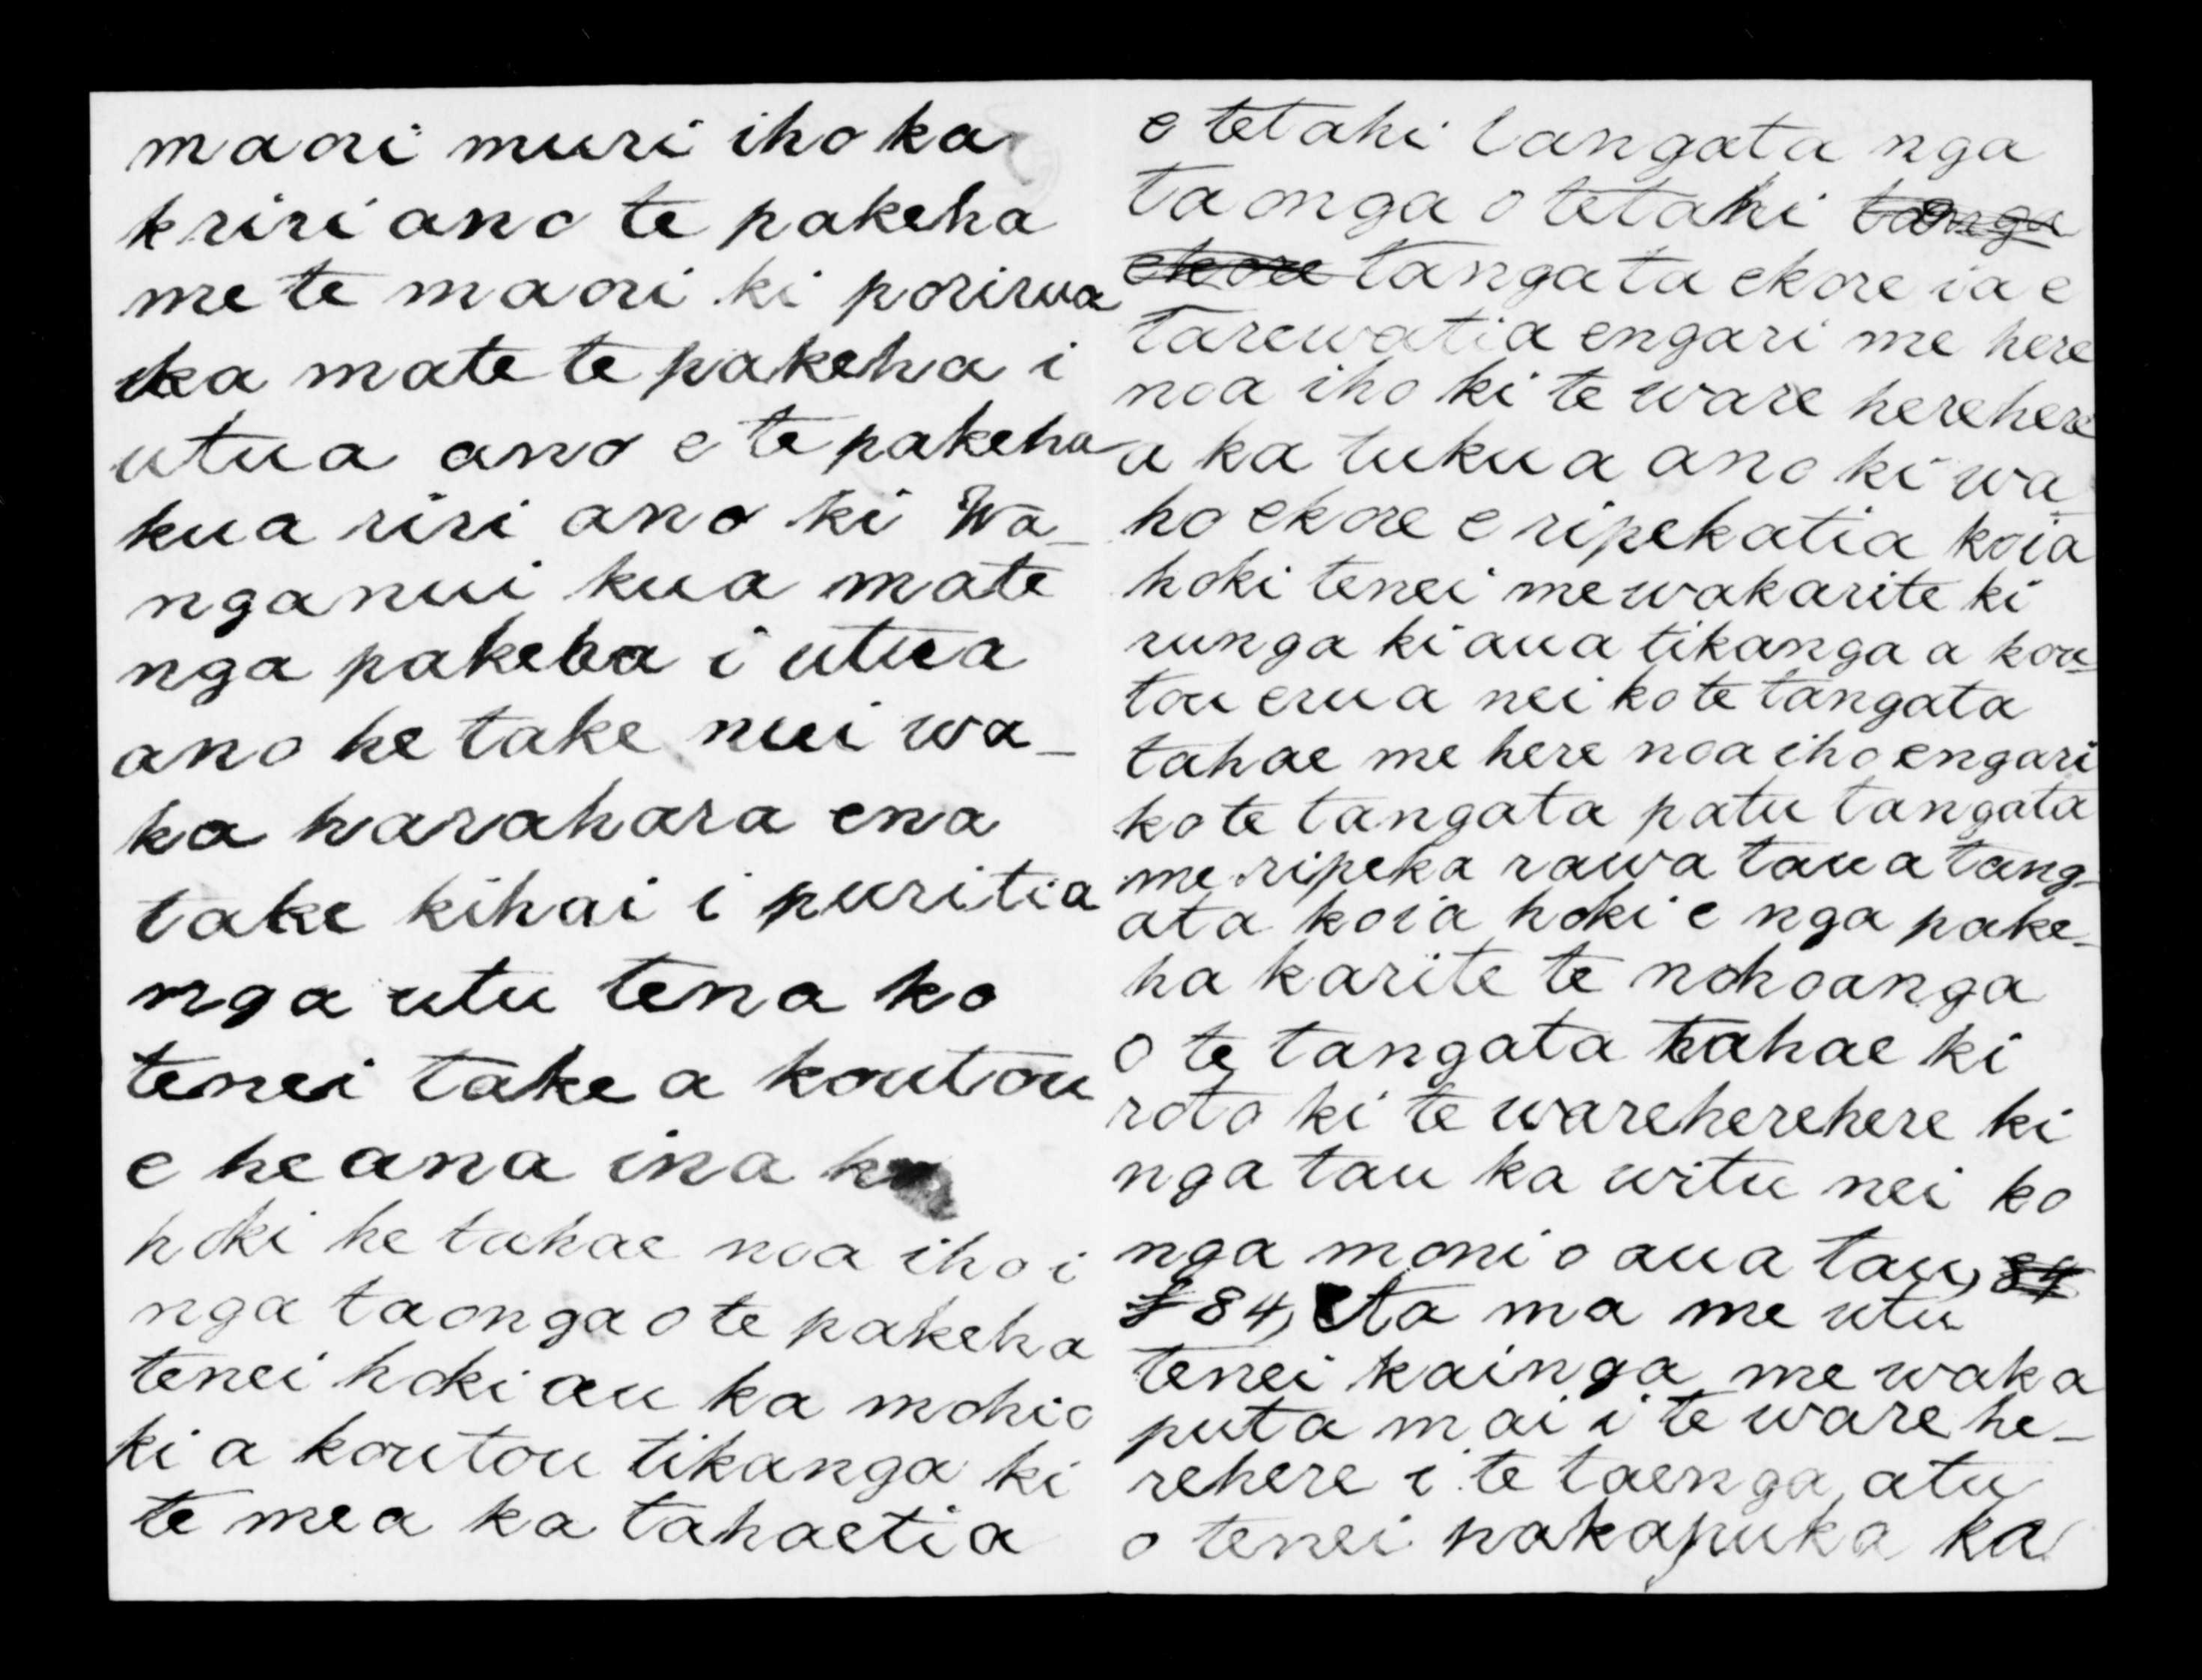 maori muri iho ka
kriri ano te pakeha
me te maori ki porirua
ka mate te pakeha i
utua ano e te pakeha
kua riri ano ki Wa_
nganui kua mate
nga pakeha i utua
ano he take nui wa_
ka harahara ena
take kihai i puritia
nga utu tena ko
tenei take a koutou
e he ana ina
hoki he tahae noa iho i
nga taonga o te pakeha
tenei hoki au ka mohio
ki a koutou tikanga ki
te mea ka tahaetia
e tetahi tangata nga
taonga o tetahi tanga
ekore tangata ekore ia e
tarewatia engari me here
noa iho ki te ware herehere
a ka tukua ano ki wa
ho ekore e ripekatia koia
hoki tenei me wakarite ki
runga ki aua tikanga a kou_
tou erua nei ko te tangata
tahae me here noa iho engari
ko te tangata patu tangata
me ripeka rawa taua tang_
ata koia hoki e nga pake_
ha karite te nohoanga
o te tangata tahae ki
roto ki te wareherehere ki
nga tau ka witu nei ko
nga moni o aua tau, 84
£84, Eta ma me utu
tenei kainga me waka
puta mai i te ware he_
rehere i te taenga atu
o tenei pukapuka ka